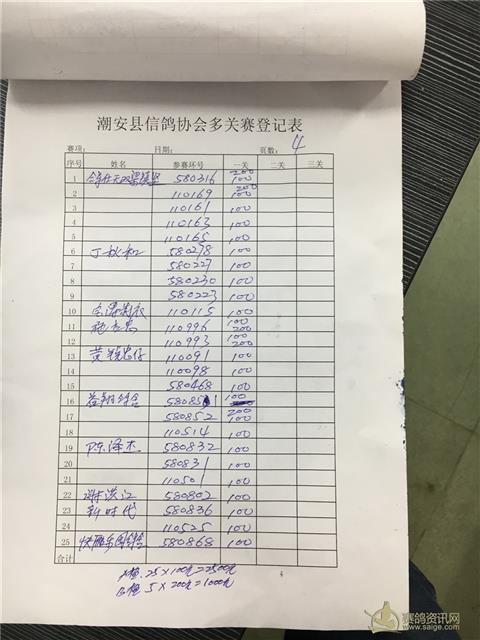 潮安县信鸽协会多关赛登记表
赛项: 日期: 页数: 4
序号 姓名 参赛环号 一关 二关 三关
1 580316 200 100
2 110169 200 100
3 110161 100
4 110163 100
5 110165 100
6 丁秋和 580278 100
7 580227 100
8 580230 100
9 580223 100
10 110115 100
11 110996 100 200
12 110993 100 200
13 110091 100
14 110098 100
15 580468 100
16 580851 100
17 580852 200 100
18 110514 100
19 陈泽杰 580832 100
20 580831 100
21 11501 100
22 谢洪江 580802 100
23 新时代 580836 100
24 110525 100
25 580868 100
合计
25×100元=2500元
5×200元=1000元
赛鸽资讯网
www.saige.com